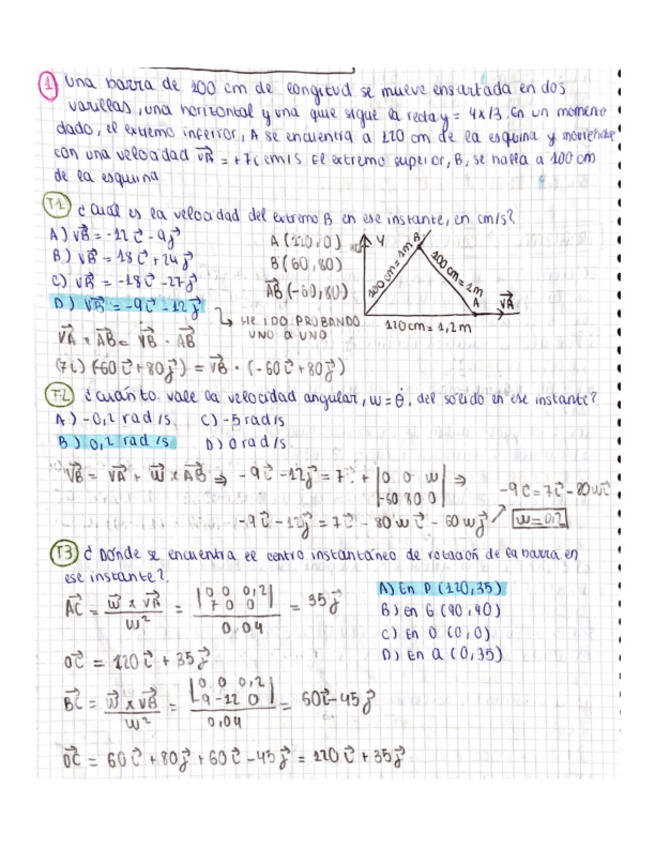 1 Una barra de 100 cm de longitud se mueve ensartada en dos
varillas, una horizontal y una que sigue la recta y = 4x/3. En un momento
dado, el extremo inferior, A se encuentra a 120 cm de la esquina y moviéndose
con una velocidad v⃗A = +7i cm/s El extremo superior, B, se halla a 100 cm
de la esquina
T1 ¿Cuál es la velocidad del extremo B en ese instante, en cm/s?
A) v⃗B = -12i⃗ - 9j⃗
B) v⃗B = 18i⃗ + 24j⃗
C) v⃗B = -18i⃗ - 27j⃗
D) v⃗B = -9i⃗ - 12j⃗
A (120,0)
B (60,80)
A⃗B (-60,80)
↳ HE IDO PROBANDO
UNO A UNO
Y
B
100 cm = 1m
100 cm = 1m
A
v⃗A
120 cm = 1,2 m
v⃗A · A⃗B = v⃗B · A⃗B
(7i) (-60i⃗ + 80j⃗) = v⃗B · (-60i⃗ + 80j⃗)
T2 ¿Cuánto vale la velocidad angular, ω = θ̇, del sólido en ese instante?
A) -0,2 rad/s C) -5 rad/s
B) 0,2 rad/s D) 0 rad/s
v⃗B = v⃗A + ω⃗ x A⃗B ⇒ -9i⃗ - 12j⃗ = 7i + |0 0 ω| ⇒
|-60 80 0|
-9i = 7i⃗ - 80ωi⃗
-9i⃗ - 12j⃗ = 7i⃗ - 80ωi⃗ - 60ωj⃗ ω = 0,2
T3 ¿Dónde se encuentra el centro instantáneo de rotación de la barra en
ese instante?
A) En P (120,35)
B) en G (90,40)
C) En O (0,0)
D) En Q (0,35)
A⃗C = ω⃗ x v⃗A / ω² = |0 0 0,2| |7 0 0| / 0,04 = 35j⃗
O⃗C = 120i⃗ + 35j⃗
B⃗C = ω⃗ x v⃗B / ω² = |0 0 0,2| |-9 -12 0| / 0,04 = 60i⃗ - 45j⃗
O⃗C = 60i⃗ + 80j⃗ + 60i⃗ - 45j⃗ = 120i⃗ + 35j⃗